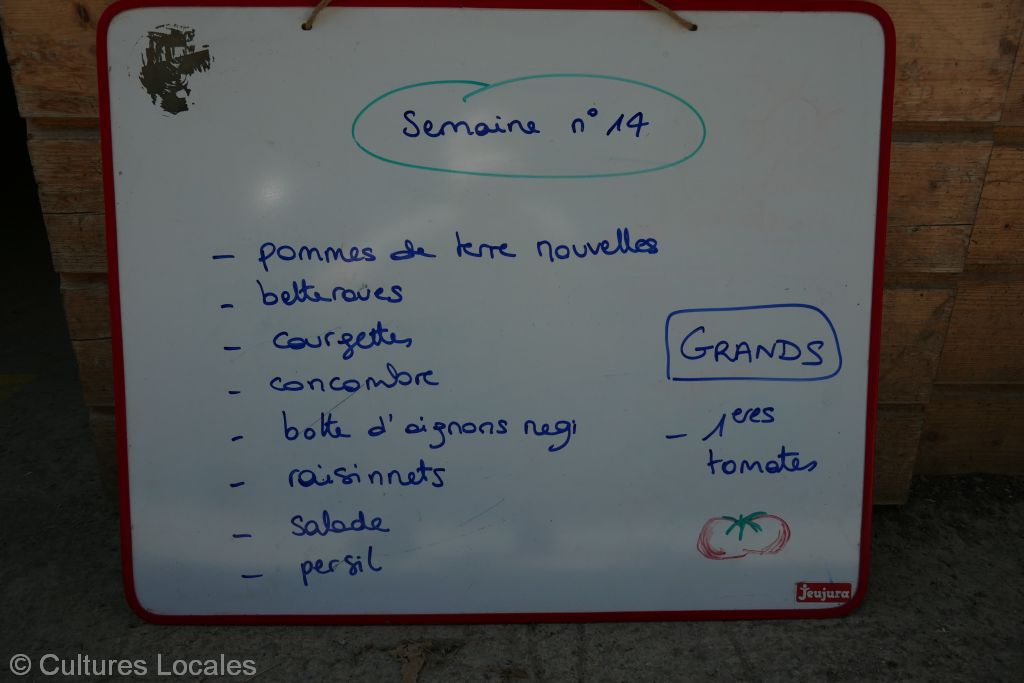 Semaine n° 14
- pommes de terre nouvelles
- betteraves
- courgettes
- concombre
- botte d'oignons negi
- raisinnets
- salade
- persil
GRANDS
- 1eres
tomates
Jeujura
© Cultures Locales